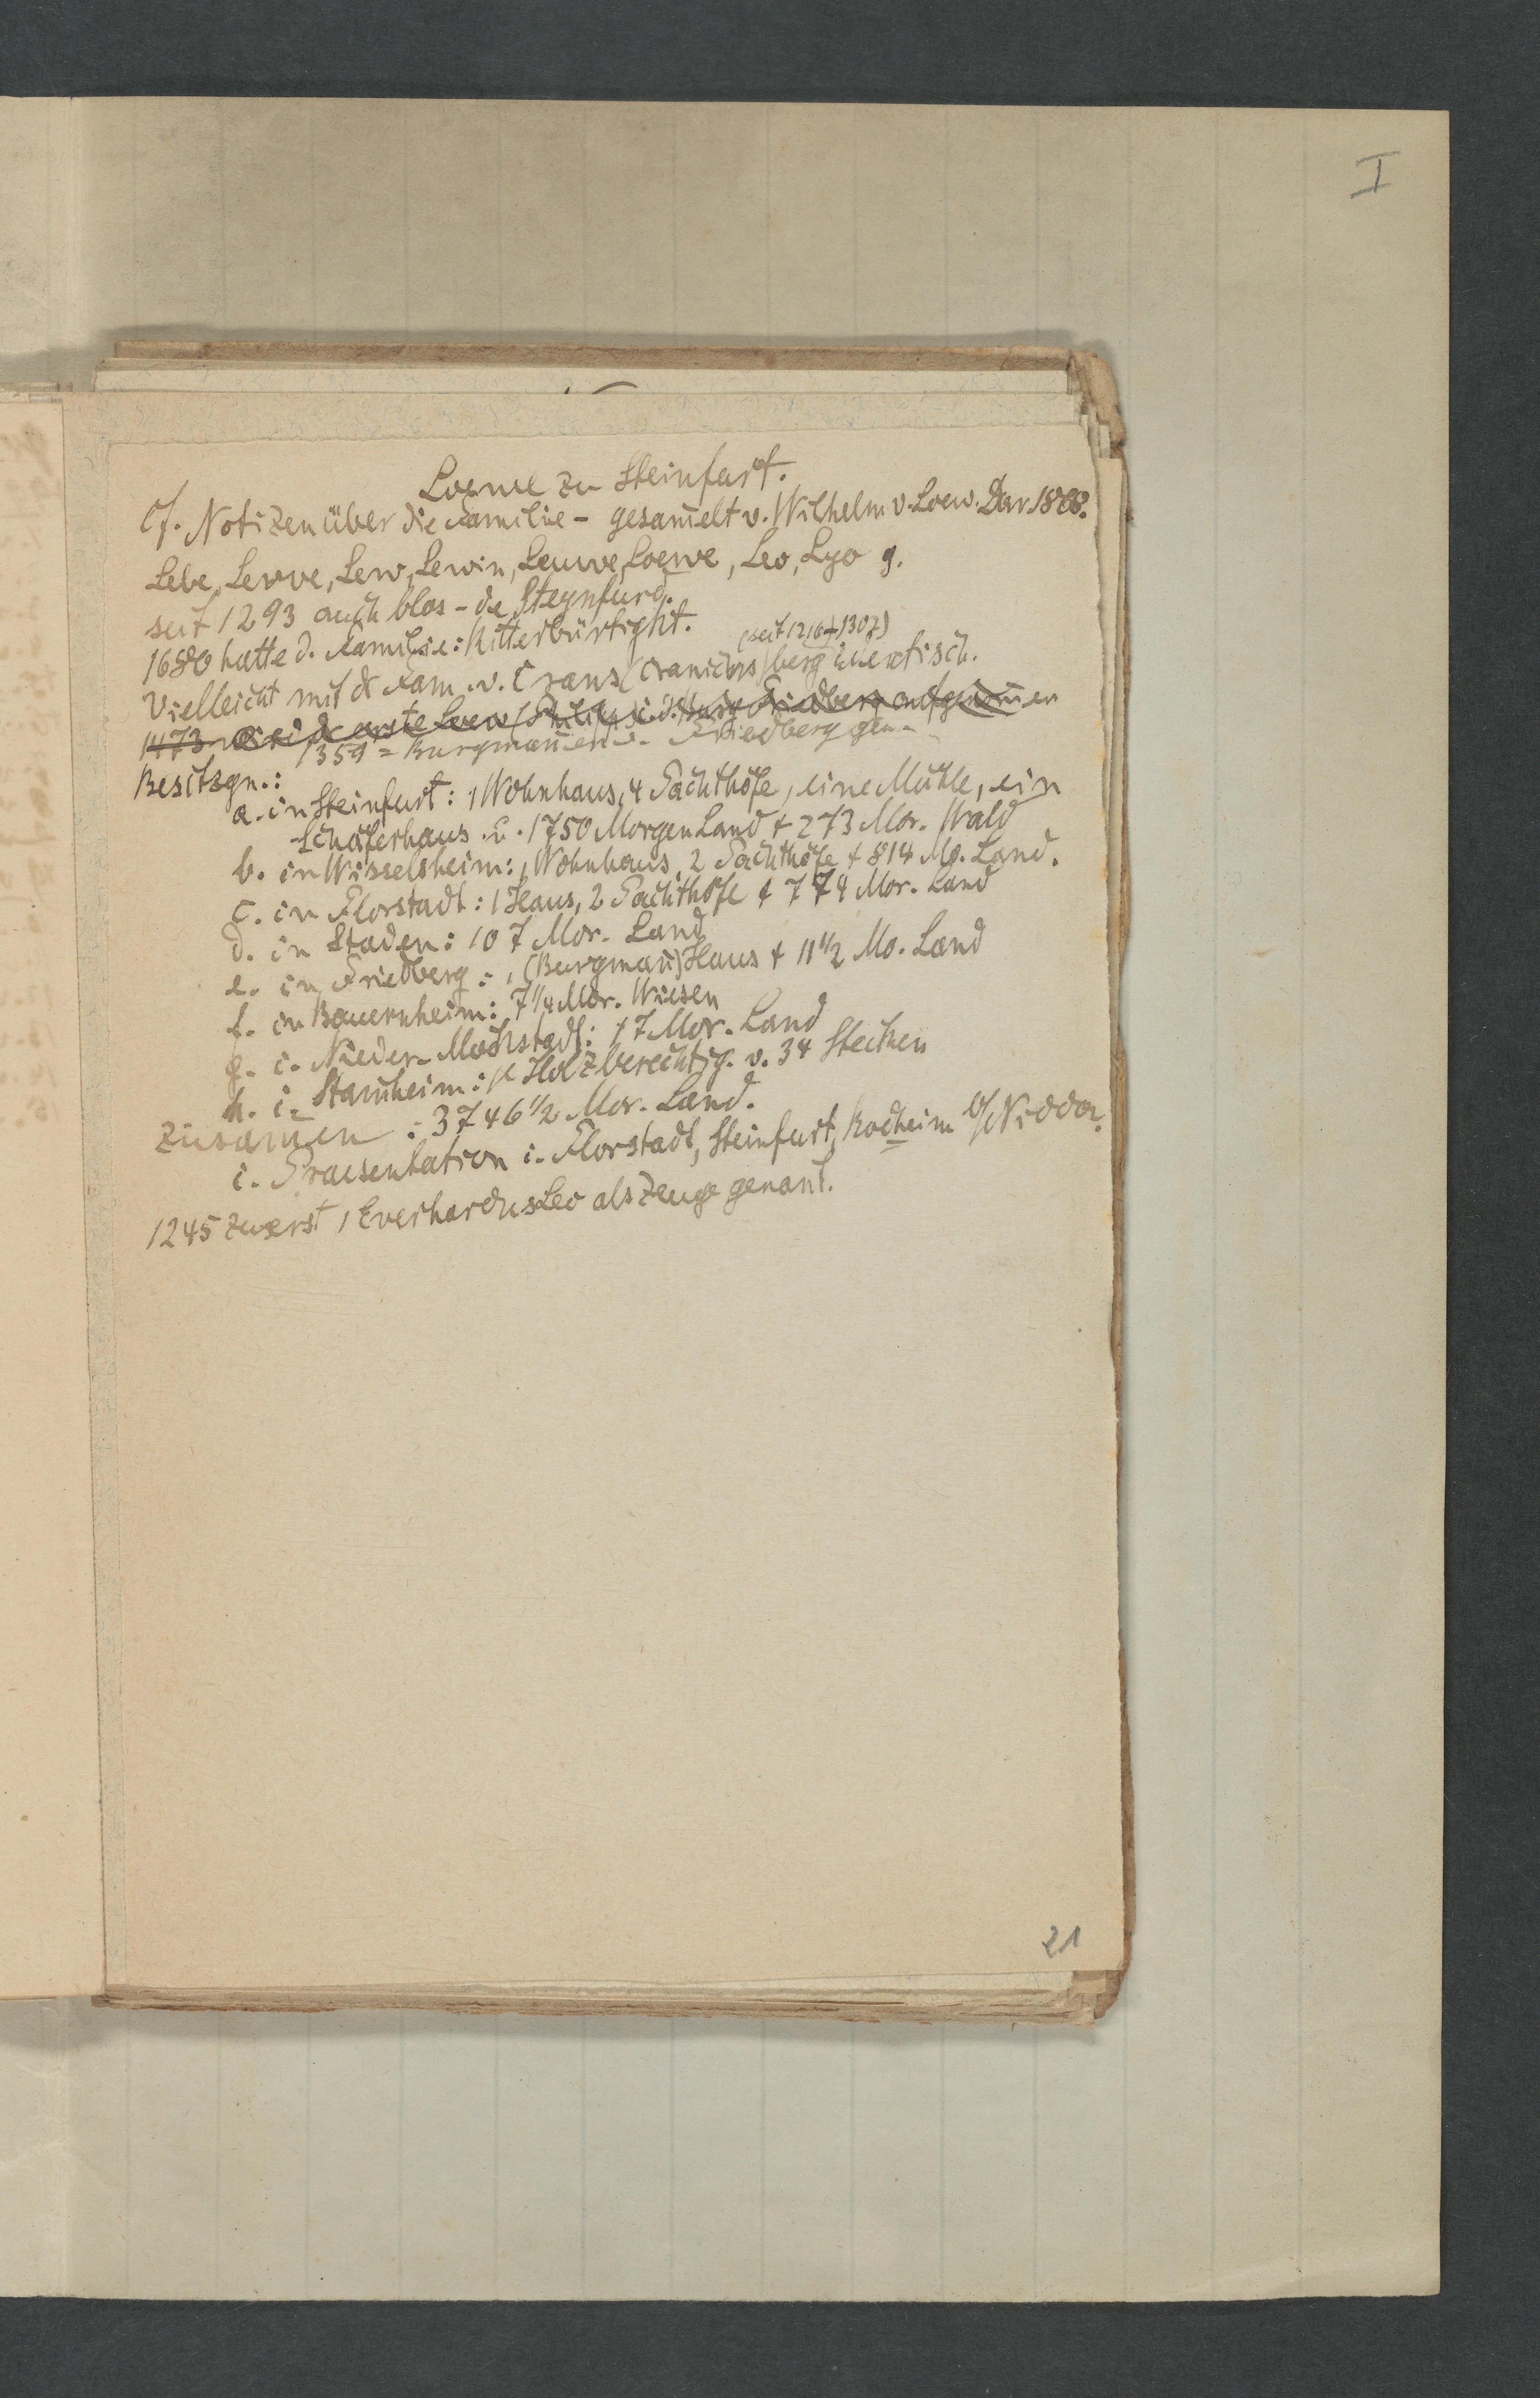 I
Loewe zu Steinfurt.
Cf. Notizen über die Familie - gesam̄elt v. Wilhelm v. Loew. Dar. 1868.
Lebe, Lewe, Lew, Lewin, Leuwe, Loewe, Leo, Lyo g.
seit 1293 auch blos - de Steynfurd.
1680 hatte d. Familie: Ritterbürtigkt.
(seit 1216-1307)
Vielleicht mit dr Fam. v. Crans (Cranichs)berg identisch.
1473 wird dr erste Loew (Philipp) i. d. Burg Friedberg aufgenom̄en
1359 = Burgman̄en v. Friedberg gen.
Besitzgn.:
a. in Steinfurt: 1 Wohnhaus, 4 Pachthöfe, eine Mühle, ein
Schäferhaus u. 1750 Morgen Land + 273 Mor. Wald
b. in Wisselsheim: 1 Wohnhaus, 2 Pachthöfe + 814 Mo. Land.
c. in Florstadt: 1 Haus, 2 Pachthöfe + 774 Mor. Land
d. in Staden: 107 Mor. Land
e. in Friedberg: 1 (Burgman̄) Haus + 11 1/2 Mo. Land
f. in Bauernheim: 7 1/4 Mor. Wiesen
g. i. Nieder-Mockstadt: 17 Mor. Land
h. i. Stam̄heim: Holzberechtig. v. 34 Stecken
Zusam̄en: 3746 1/2 Mor. Land.
i. Praesentation i. Florstadt, Steinfurt, Rodheim a/Nidda.
1245 zuerst 1 Everhardus Leo als Zeuge genan̄t.
21